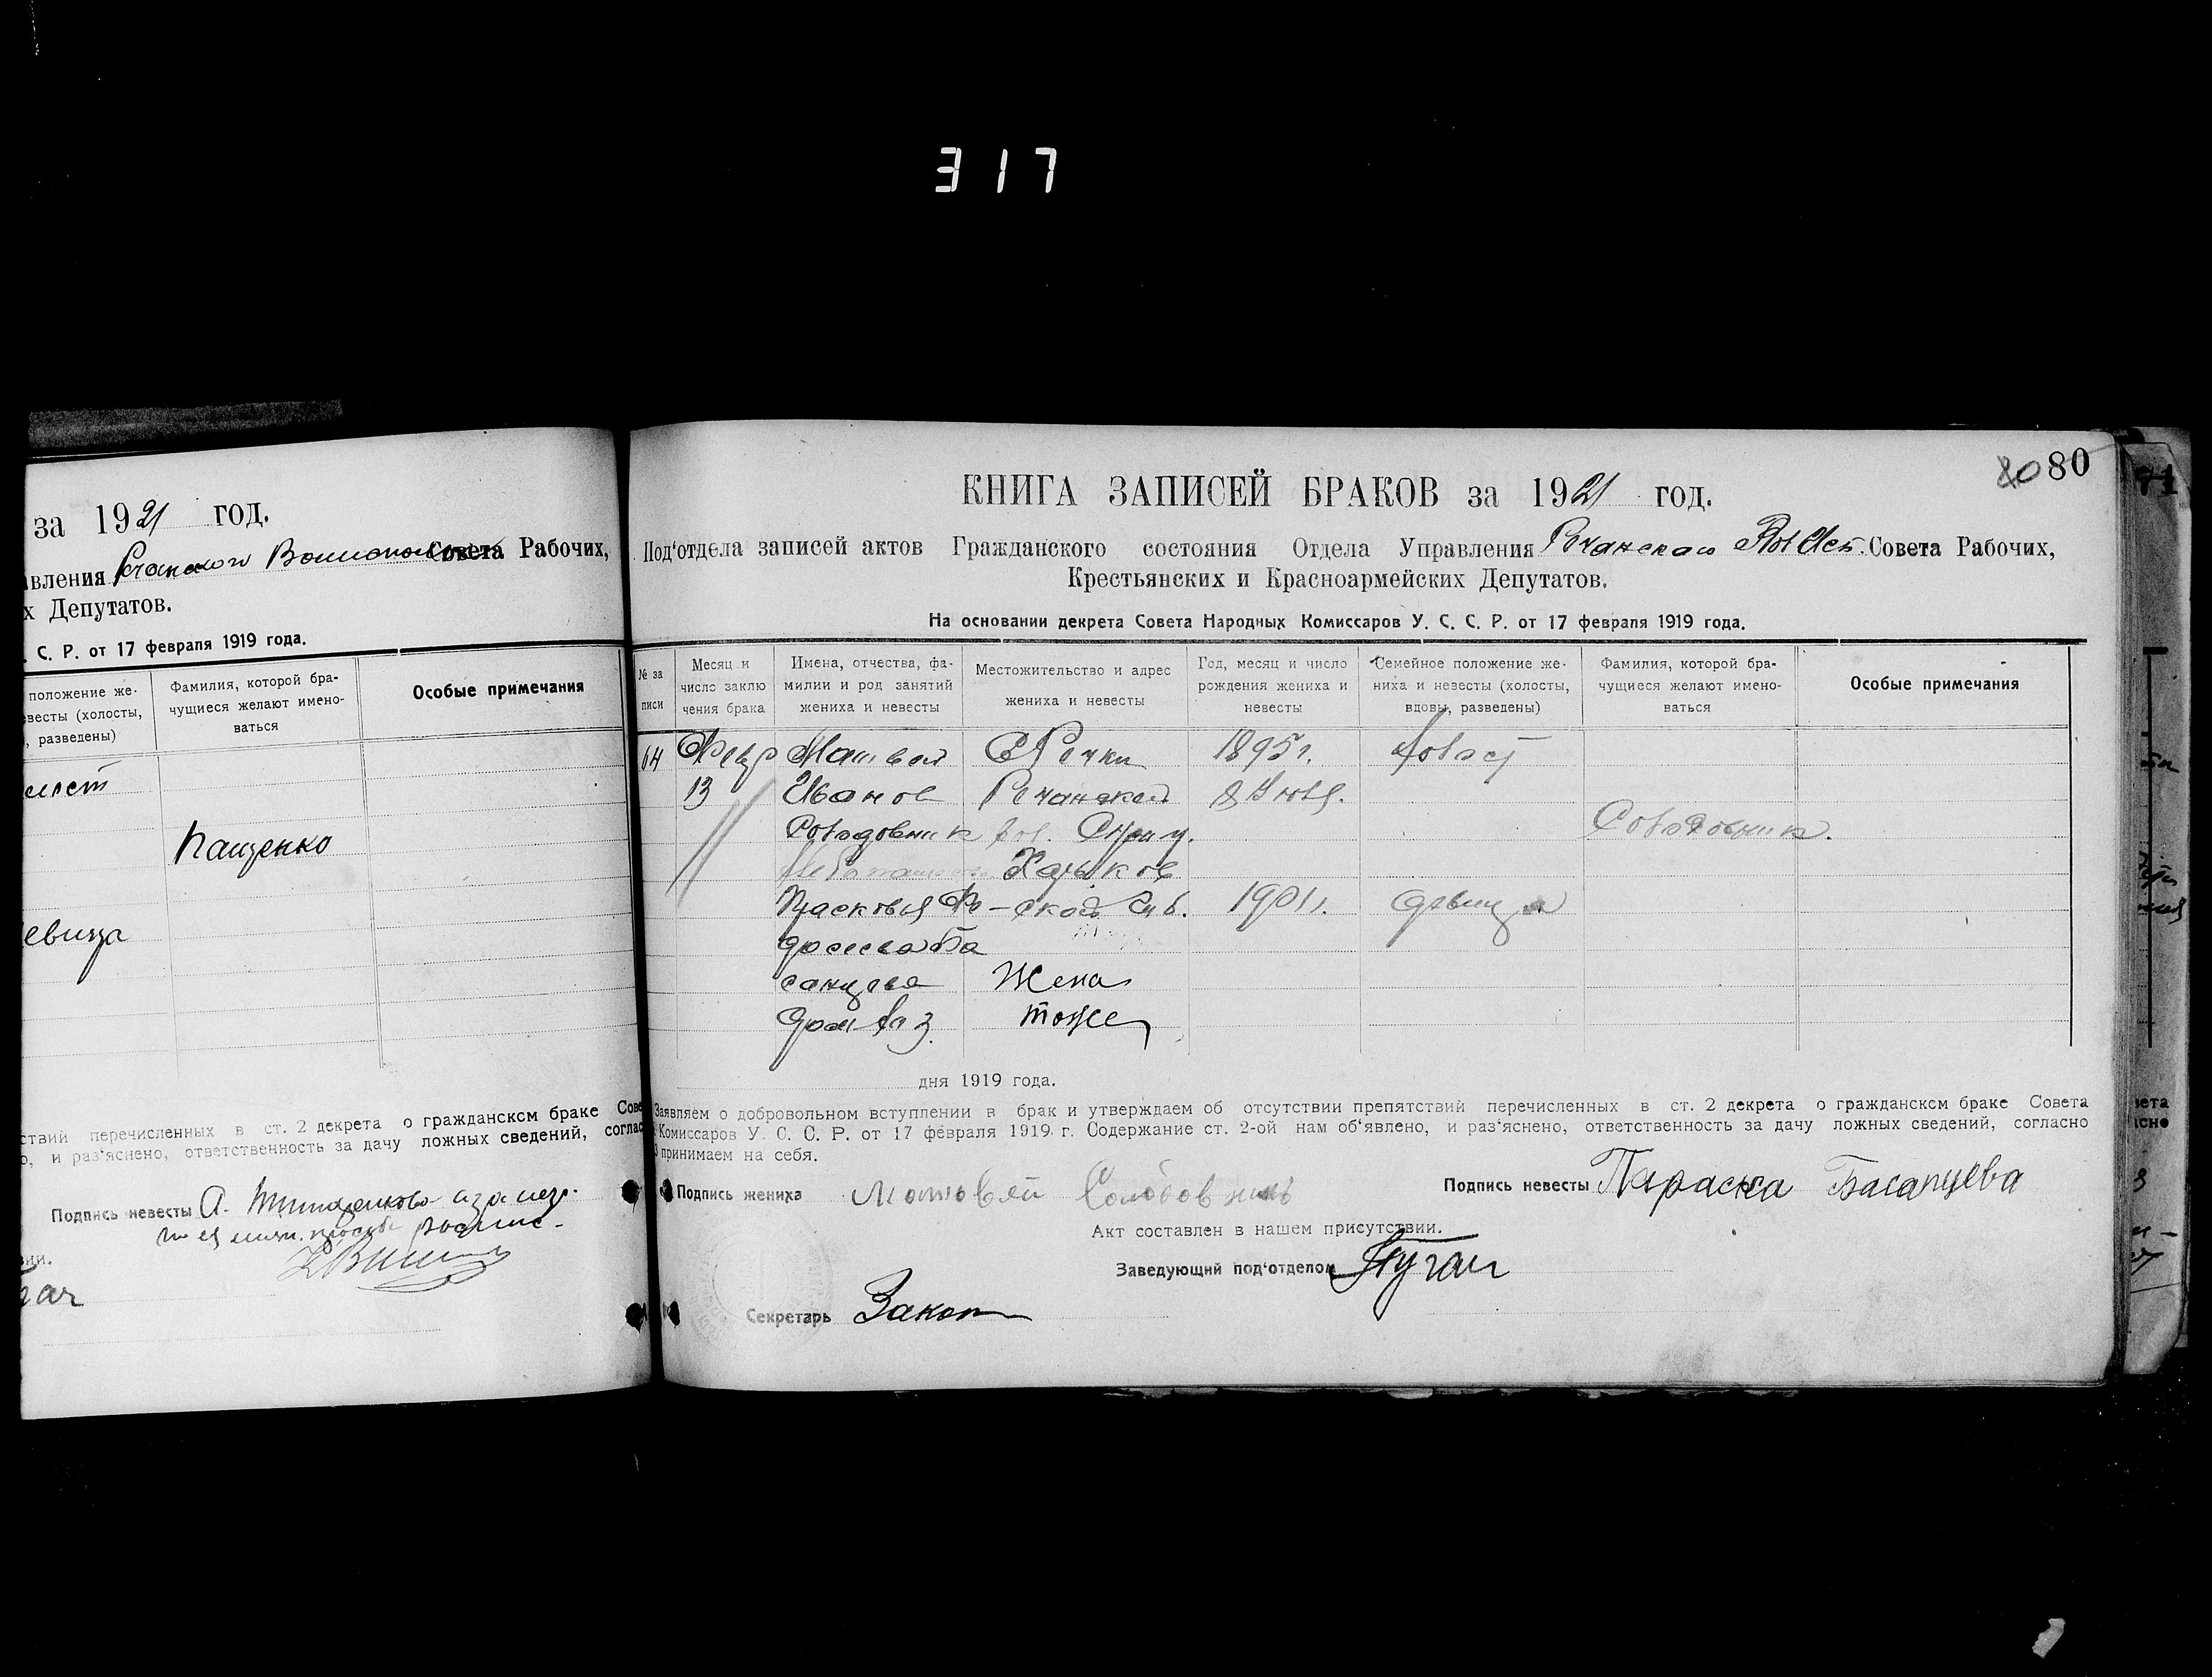 317
за 1921 год.
авления Речанского Волисполкома Совета Рабочих,
х Депутатов.
. С. Р. от 17 февраля 1919 года.
положение же-
евесты (холосты,
, разведены)
Фамилия, которой бра-
чущиеся желают имено-
ваться
Особые примечания
Пащенко
евица
ствий перечисленных в ст. 2 декрета о гражданском браке Сове
о, и раз‘яснено, ответственность за дачу ложных сведений, соглас
Подпись невесты А.
вии.
80 80
КНИГА ЗАПИСЕЙ БРАКОВ за 1921 год.
Под‘отдела записей актов Гражданского состояния Отдела Управления Речанского Совета Рабочих,
Крестьянских и Красноармейских Депутатов.
На основании декрета Совета Народных Комиссаров У. С. С. Р. от 17 февраля 1919 года.
№ за
писи
Месяц и
число заклю
чения брака
Имена, отчества, фа-
милии и род занятий
жениха и невесты
Местожительство и адрес
жениха и невесты
Год, месяц и число
рождения жениха и
невесты
Семейное положение же-
ниха и невесты (холосты,
вдовы, разведены)
Фамилия, которой бра-
чущиеся желают имено-
ваться
Особые примечания
64 Февр Матвей С Речки 1895 г. холост
13 Иванов Речанской 8
Солодовник вол. Сум у. Солодовник.
Харьков
Прасковья Фе -ской губ. 1901 г. девица
дросиева Ба
санцева Жена
дом хоз. тоже
дня 1919 года.
Заявляем о добровольном вступлении в брак и утверждаем об отсутствии препятствий перечисленных в ст. 2 декрета о гражданском браке Совета
Комиссаров У. С. С. Р. от 17 февраля 1919 г. Содержание ст. 2-ой нам об‘явлено, и раз‘яснено, ответственность за дачу ложных сведений, согласно
3 принимаем на себя.
Подпись жениха Матовей Солодовникъ
Подпись невесты Параска Басанцева
Акт составлен в нашем присутствии.
Заведующий под‘отделом
Секретарь